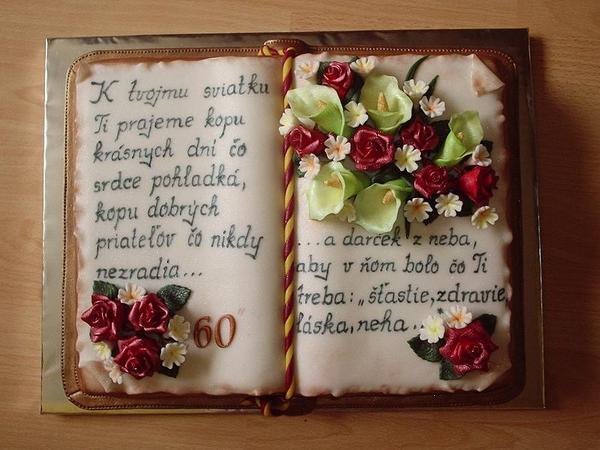 K tvojmu sviatku
Ti prajeme kopu
krásnych dní čo
srdce pohladká,
kopu dobrých
priateľov čo nikdy
nezradia...
60"
...a darček z neba,
aby v ňom bolo čo Ti
treba: „šťastie, zdravie,
láska, neha...